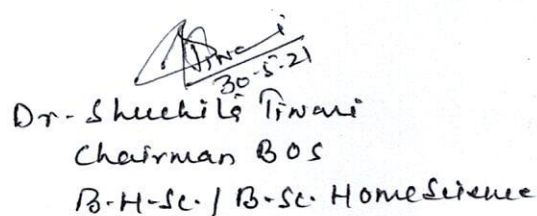 Tiwari
30-5-21
Dr- Shuchita Tiwari
Chairman BOS
B.H.Sc. / B.Sc. HomeScience